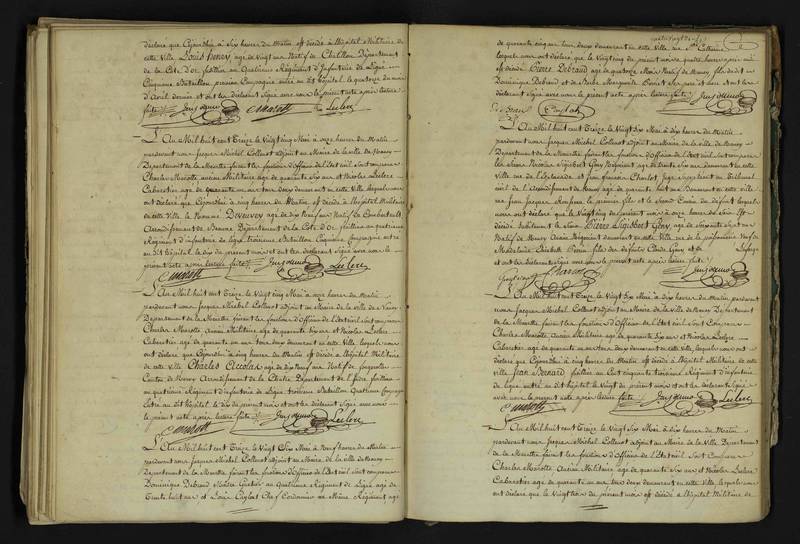 déclaré que Cejourdhui à Six heures du Matin est décédé à l'hôpital Militaire de
cette Ville Louis henry agé de Vingt ans Natif de Chatillon Département
de la Cote D'or fusilier au Quatrieme Régiment d'Infanterie de Ligne
Cinquieme Bataillon, premiere Compagnie entré au dit hôpital le quatorze du mois
d'Avril dernier et ont les déclarants Signé avec nous le présent acte après lecture
faite
Leclerc
L'An Mil huit cent Treize le Vingt cinq Mai à onze heures du Matin
pardevant nous Jacques Michel Collenot adjoint au Maire de la ville de Nancy
Département de la Meurthe faisant les fonctions d'Officier de l'Etat civil Sont comparus
Charles Marotte ancien Militaire agé de quarante Six ans et Nicolas Leclerc
Cabaretier agé de quarante un ans tous deux demeurant en cette Ville lesquels nous
ont déclaré que Cejourdhui à cinq heures du Matin est décédé à l'hôpital Militaire
en cette Ville le Nommé Devevey agé de dix Neuf ans Natif de
Arrondissement de Beaune Département de la Cote D'or fusilier au quatrieme
Régiment d'infanterie de ligne troisieme Bataillon Cinquieme Compagnie entré
au dit hôpital le dix du présent mois et ont les déclarants Signé avec nous le
présent acte après lecture faite
Leclerc
L'An Mil huit cent Treize le Vingt cinq Mai à onze heures du Matin
pardevant nous Jacques Michel Collenot adjoint au Maire de la Ville de Nancy
Département de la Meurthe faisant les fonctions d'Officier de l'Etat civil Sont comparus
Charles Marotte Ancien Militaire agé de quarante Six ans et Nicolas Leclerc
Cabaretier agé de quarante un ans tous deux demeurant en cette Ville lesquels nous
ont déclaré que Cejourdhui à cinq heures du Matin est décédé à l'hôpital Militaire
de cette Ville Charles agé de dix Neuf ans Natif de
Canton de Arrondissement de la Chatre Département de l'Indre fusilier
au quatrieme Régiment d'infanterie de Ligne troisieme Bataillon Quatrieme Compagnie
entré au dit hôpital le dix du présent mois et ont les déclarants Signé avec nous
le présent acte après lecture faite
Leclerc
L'An Mil huit cent Treize le Vingt Six Mai à Neuf heures du Matin
pardevant nous Jacques Michel Collenot adjoint au Maire de la Ville de Nancy
Département de la Meurthe faisant les fonctions d'Officier de l'Etat civil sont comparus
Dominique Debraud Maitre Guetrier au Quatrieme Régiment de Ligne agé de
Trente huit ans et Louis Caylat Chef Cordonnier au Même Régiment agé
de quarante cinq ans tous deux demeurant en cette Ville rue Ste Catherine
lesquels nous ont déclaré que le Vingt cinq du present mois à quatre heures après midi
est décédé Pierre Debraud agé de quatorze Mois Natif de Nancy fils dudit
Dominique Debraud et de Barbe Marguerite et ont les
déclarants Signé avec nous le présent acte après lecture faite
Caylat
L'An Mil huit cent Treize le Vingt Six Mai à dix heures du Matin
pardevant nous Jacques Michel Collenot adjoint au Maire de la Ville de Nancy
Département de la Meurthe faisant les fonctions d'Officier de l'Etat civil Sont comparus
les Sieurs Nicolas Sigisbert Gény agé de trente Six ans demeurant en cette
Ville rue de l'Esplanade et Jean françois Charlot Juge Suppléant au Tribunal
civil de l'arrondissement de Nancy agé de quarante huit ans Demeurant en cette ville
rue le premier fils et le Second Cousin du défunt lesquels
nous ont déclaré que le Vingt cinq du présent mois à onze heures du Soir Est
décédé Subitement le Sieur Pierre Sigisbert Gény, agé de Soixante ans
Natif de Nancy Ancien Négociant demeurant en cette Ville rue de la poissonnerie Veuf de
Madelaine Elisabeth fils des défunts Claude Gény et de
et ont les déclarants Signé avec nous le présent acte après lecture faite
Charlot
L'An Mil huit cent Treize le Vingt Six Mai à dix heures du Matin pardevant
nous Jacques Michel Collenot adjoint au Maire de la Ville de Nancy Département
de la Meurthe faisant les fonctions d'Officier de l'Etat civil Sont Comparus
Charles Marotte Ancien Militaire agé de quarante Six ans et Nicolas Leclerc
Cabaretier agé de quarante un ans tous deux demeurant en cette Ville, lesquels nous ont
déclaré que Cejourdhui à cinq heures du Matin est décédé à l'hôpital Militaire de cette
ville Jean Bernard fusilier au Cent cinquante troisieme Régiment d'infanterie
de ligne entré au dit hôpital le Vingt du present mois et ont les déclarants Signé
avec nous le présent acte après lecture faite
Leclerc
L'An Mil huit cent Treize le Vingt Six Mai à dix heures du Matin
pardevant nous Jacques Michel Collenot adjoint au Maire de la Ville Département
de la Meurthe faisant les fonctions d'Officier de l'Etat civil Sont Comparus
Charles Marotte Ancien Militaire agé de quarante Six ans et Nicolas Leclerc
Cabaretier agé de quarante un ans tous deux demeurant en cette Ville, lesquels nous
ont déclaré que le Vingt cinq du présent mois est décédé à l'hôpital Militaire de